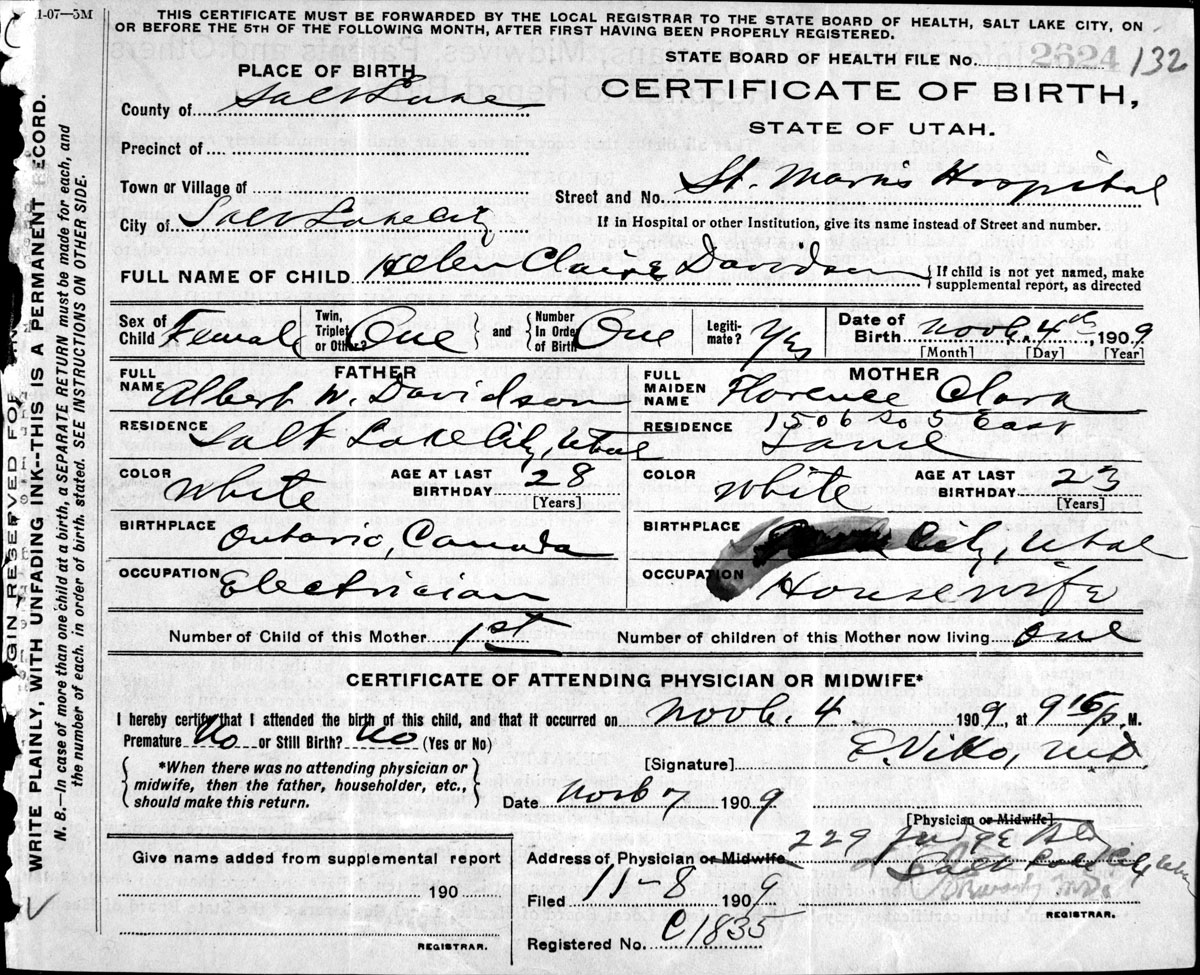 1-07—5M
THIS CERTIFICATE MUST BE FORWARDED BY THE LOCAL REGISTRAR TO THE STATE BOARD OF HEALTH, SALT LAKE CITY, ON
OR BEFORE THE 5TH OF THE FOLLOWING MONTH, AFTER FIRST HAVING BEEN PROPERLY REGISTERED.
STATE BOARD OF HEALTH FILE No. 2624 132
PLACE OF BIRTH
CERTIFICATE OF BIRTH,
STATE OF UTAH.
County of Salt Lake
Precinct of
Town or Village of
Street and No. St. Mark's Hospital
City of Salt Lake City
If in Hospital or other Institution, give its name instead of Street and number.
FULL NAME OF CHILD Helen Claire Davidson
{If child is not yet named, make
supplemental report, as directed
Sex of Child Female
Twin, Triplet or Other? One
and
Number In Order of Birth One
Legiti-mate? Yes
Date of Birth Novb. 4th, 1909
[Month] [Day] [Year]
FATHER
FULL NAME Albert W. Davidson
RESIDENCE Salt Lake City, Utah
COLOR White
AGE AT LAST BIRTHDAY 28
[Years]
BIRTHPLACE Ontario, Canada
OCCUPATION Electrician
MOTHER
FULL MAIDEN NAME Florence Clark
RESIDENCE 1506 So 5 East
Same
COLOR White
AGE AT LAST BIRTHDAY 23
[Years]
BIRTHPLACE City, Utah
OCCUPATION Housewife
Number of Child of this Mother 1st
Number of children of this Mother now living One
CERTIFICATE OF ATTENDING PHYSICIAN OR MIDWIFE*
I hereby certify that I attended the birth of this child, and that it occurred on Novb. 4. 1909, at 9 15 P. M.
Premature No or Still Birth? No (Yes or No)
[Signature] E. Viko, M.D.
*When there was no attending physician or
midwife, then the father, householder, etc.,
should make this return.
Date Novb 7 1909
[Physician or Midwife]
Give name added from supplemental report
190
REGISTRAR.
Address of Physician or Midwife 229 Judge Bld
Salt Lake City, Utah
Filed 11-8 1909
REGISTRAR.
Registered No. C1835
WRITE PLAINLY, WITH UNFADING INK--THIS IS A PERMANENT RECORD.
N. B.—In case of more than one child at a birth, a SEPARATE RETURN must be made for each, and
the number of each, in order of birth, stated. SEE INSTRUCTIONS ON OTHER SIDE.
GIN RESERVED FOR